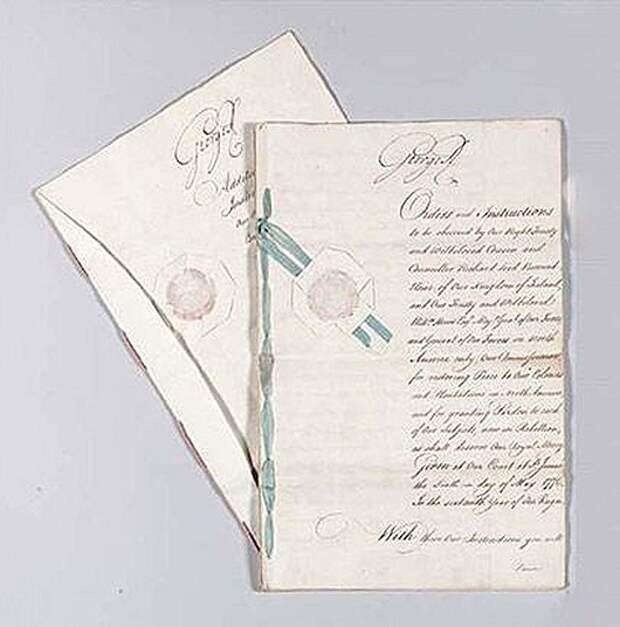 George R
Additi
Instru
our
George R
Orders and Instructions
to be observed by Our Right Trusty
and Welbeloved Cousin and
Councillor Richard Lord Viscount
Howe of Our Kingdom of Ireland,
and Our Trusty and Welbeloved
Willm. Howe Esqr. Majr. Genl. of Our Forces
and General of Our Forces in North
America only, Our Commissioners
for restoring Peace to Our Colonies
and Plantations in North America
and for granting Pardon to such
of Our Subjects, now in Rebellion,
as shall deserve Our Royal Mercy
Given at Our Court at St. James's
the Sixth day of May 1776
In the sixteenth Year of Our Reign
With these Our Instructions you will